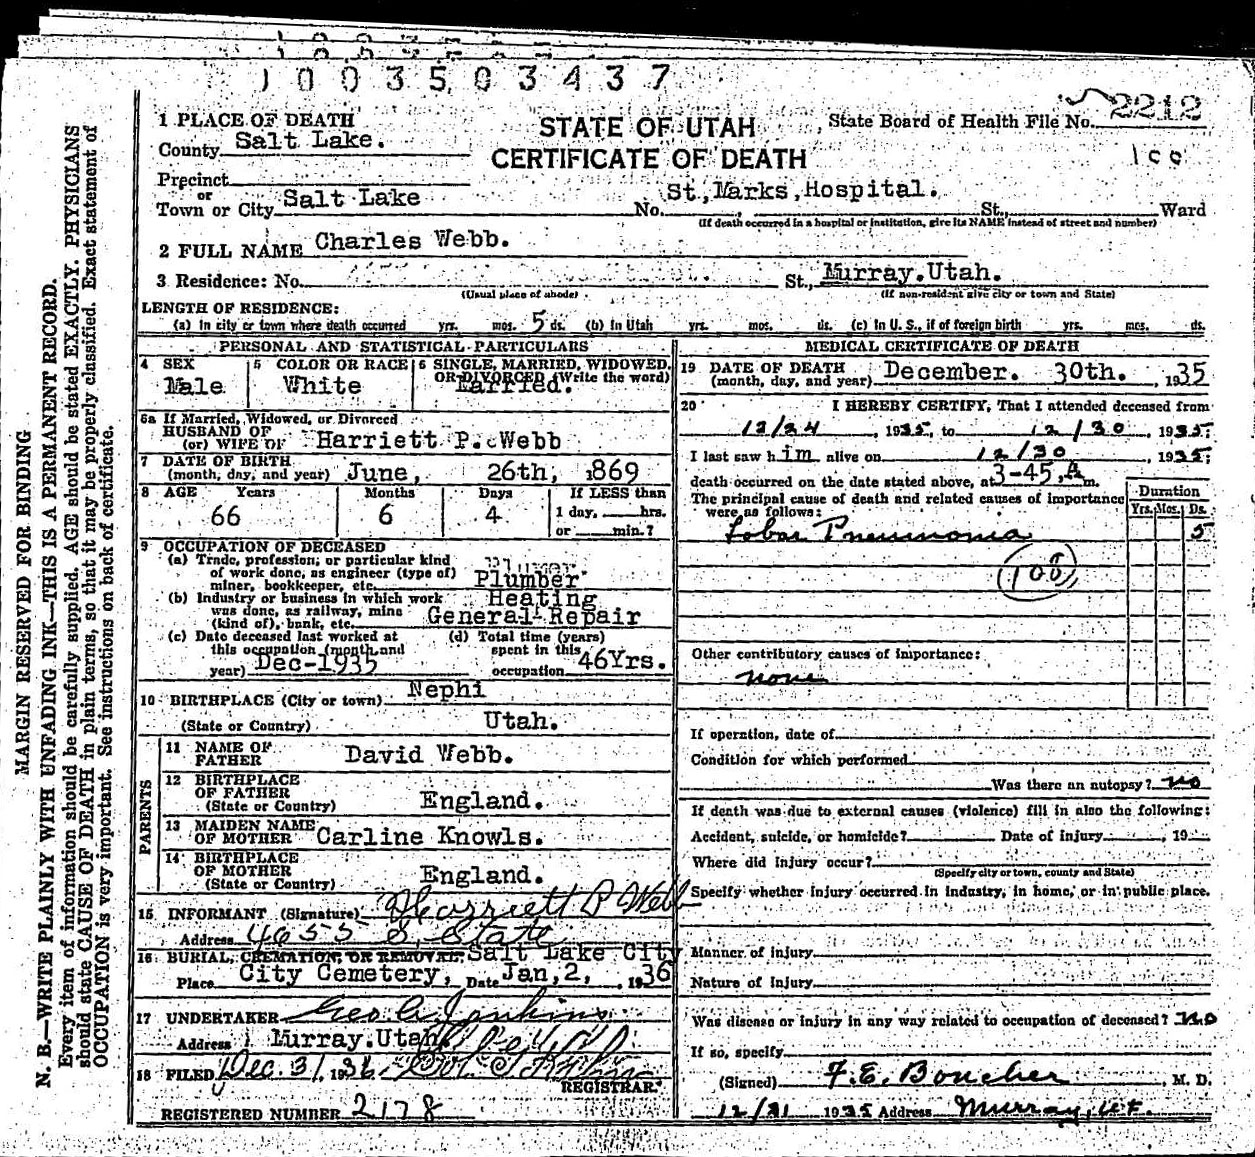 1003503437
1 PLACE OF DEATH
County Salt Lake.
STATE OF UTAH
CERTIFICATE OF DEATH
State Board of Health File No. 2212
100
Precinct
or
Town or City Salt Lake No. St., Marks, Hospital. St., Ward
(If death occurred in a hospital or institution, give its NAME instead of street and number)
2 FULL NAME Charles Webb.
3 Residence: No. St., Murray. Utah.
(Usual place of abode) (If non-resident give city or town and State)
LENGTH OF RESIDENCE:
(a) In city or town where death occurred yrs. mos. 5 ds. (b) In Utah yrs. mos. ds. (c) In U. S., if of foreign birth yrs. mos. ds.
PERSONAL AND STATISTICAL PARTICULARS
4 SEX Male
5 COLOR OR RACE White
6 SINGLE, MARRIED, WIDOWED, OR DIVORCED (Write the word) Married.
6a If Married, Widowed, or Divorced
HUSBAND OF
(or) WIFE OF Harriett P. Webb
7 DATE OF BIRTH
(month, day, and year) June, 26th, 1869
8 AGE Years Months Days If LESS than
66 6 4 1 day, hrs.
or min.?
9 OCCUPATION OF DECEASED
(a) Trade, profession, or particular kind
of work done, as engineer (type of)
miner, bookkeeper, etc. Plumber
(b) Industry or business in which work Heating
was done, as railway, mine
(kind of), bank, etc. General Repair
(c) Date deceased last worked at
this occupation (month and
year) Dec-1935
(d) Total time (years)
spent in this
occupation 46Yrs.
10 BIRTHPLACE (City or town) Nephi
(State or Country) Utah.
PARENTS
11 NAME OF
FATHER David Webb.
12 BIRTHPLACE
OF FATHER
(State or Country) England.
13 MAIDEN NAME
OF MOTHER Carline Knowls.
14 BIRTHPLACE
OF MOTHER
(State or Country) England.
15 INFORMANT (Signature) Harriett P Webb
Address 4655 S. State
16 BURIAL, CREMATION, OR REMOVAL, Salt Lake City
Place City Cemetery, Date Jan, 2, 1936
17 UNDERTAKER Geo A Jenkins
Address Murray. Utah.
18 FILED Dec. 31, 1936
REGISTRAR.
REGISTERED NUMBER 2178
MEDICAL CERTIFICATE OF DEATH
19 DATE OF DEATH
(month, day, and year) December. 30th. , 1935
20 I HEREBY CERTIFY, That I attended deceased from
12/24 , 1935, to 12/30 , 1935;
I last saw him alive on 12/30 , 1935;
death occurred on the date stated above, at 3-45, A m.
The principal cause of death and related causes of importance
were as follows:
Duration
Yrs. Mos. Ds.
Lobar Pneumonia 5
100
Other contributory causes of importance:
none
If operation, date of
Condition for which performed
Was there an autopsy? no
If death was due to external causes (violence) fill in also the following:
Accident, suicide, or homicide? Date of injury , 19
Where did injury occur?
(Specify city or town, county and State)
Specify whether injury occurred in industry, in home, or in public place.
Manner of injury
Nature of injury
Was disease or injury in any way related to occupation of deceased? no
If so, specify
(Signed) F. E. Boucher , M. D.
12/31 1935 Address Murray, Ut.
MARGIN RESERVED FOR BINDING
N. B.—WRITE PLAINLY WITH UNFADING INK—THIS IS A PERMANENT RECORD.
Every item of information should be carefully supplied. AGE should be stated EXACTLY. PHYSICIANS
should state CAUSE OF DEATH in plain terms, so that it may be properly classified. Exact statement of
OCCUPATION is very important. See instructions on back of certificate.